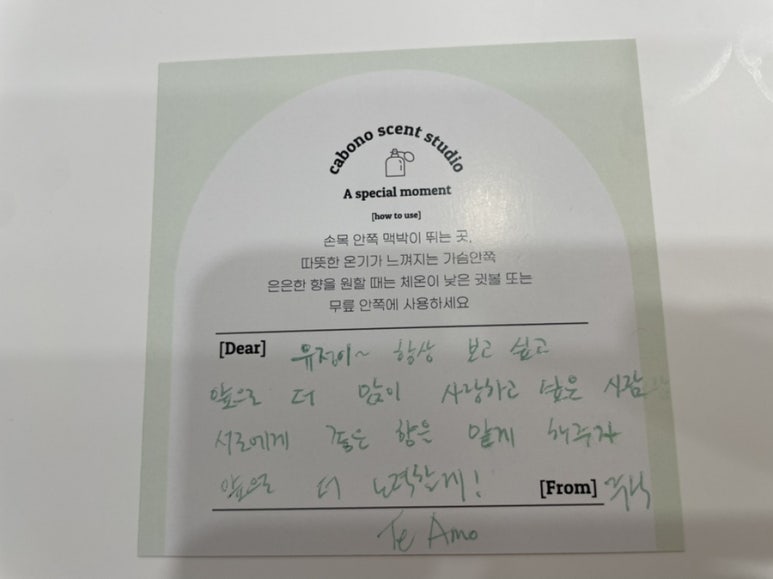 cabono scent studio
A special moment
[how to use]
손목 안쪽 맥박이 뛰는 곳,
따뜻한 온기가 느껴지는 가슴안쪽
은은한 향을 원할 때는 체온이 낮은 귓불 또는
무릎 안쪽에 사용하세요
[Dear] 유정이~ 항상 보고 싶고
앞으로 더 많이 사랑하고 싶은 사람
서로에게 좋은 향은 맡게 해주자
앞으로 더 노력할게! [From]
Te Amo